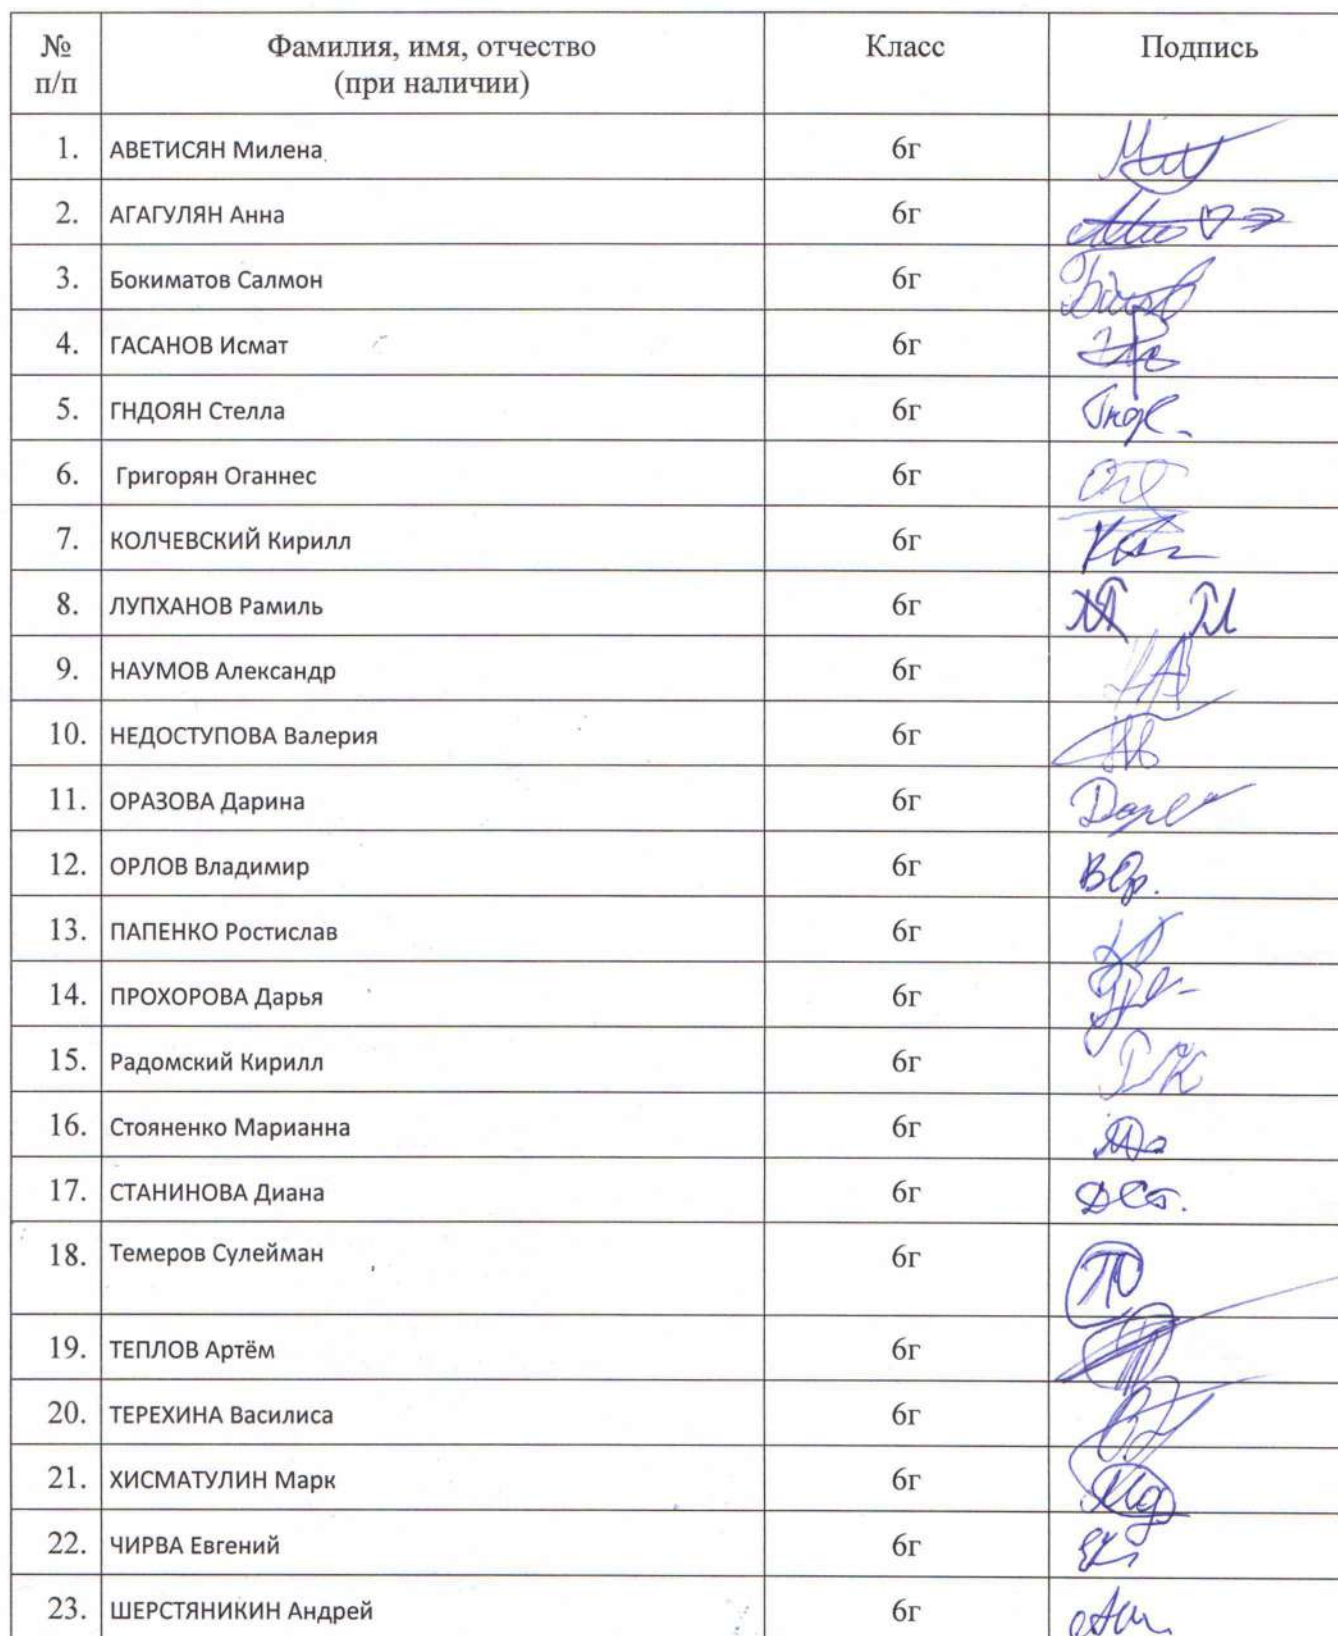 № п/п Фамилия, имя, отчество (при наличии) Класс Подпись
1. АВЕТИСЯН Милена 6г
2. АГАГУЛЯН Анна 6г
3. Бокиматов Салмон 6г
4. ГАСАНОВ Исмат 6г
5. ГНДОЯН Стелла 6г
6. Григорян Оганнес 6г
7. КОЛЧЕВСКИЙ Кирилл 6г
8. ЛУПХАНОВ Рамиль 6г
9. НАУМОВ Александр 6г
10. НЕДОСТУПОВА Валерия 6г
11. ОРАЗОВА Дарина 6г
12. ОРЛОВ Владимир 6г
13. ПАПЕНКО Ростислав 6г
14. ПРОХОРОВА Дарья 6г
15. Радомский Кирилл 6г
16. Стояненко Марианна 6г
17. СТАНИНОВА Диана 6г
18. Темеров Сулейман 6г
19. ТЕПЛОВ Артём 6г
20. ТЕРЕХИНА Василиса 6г
21. ХИСМАТУЛИН Марк 6г
22. ЧИРВА Евгений 6г
23. ШЕРСТЯНИКИН Андрей 6г